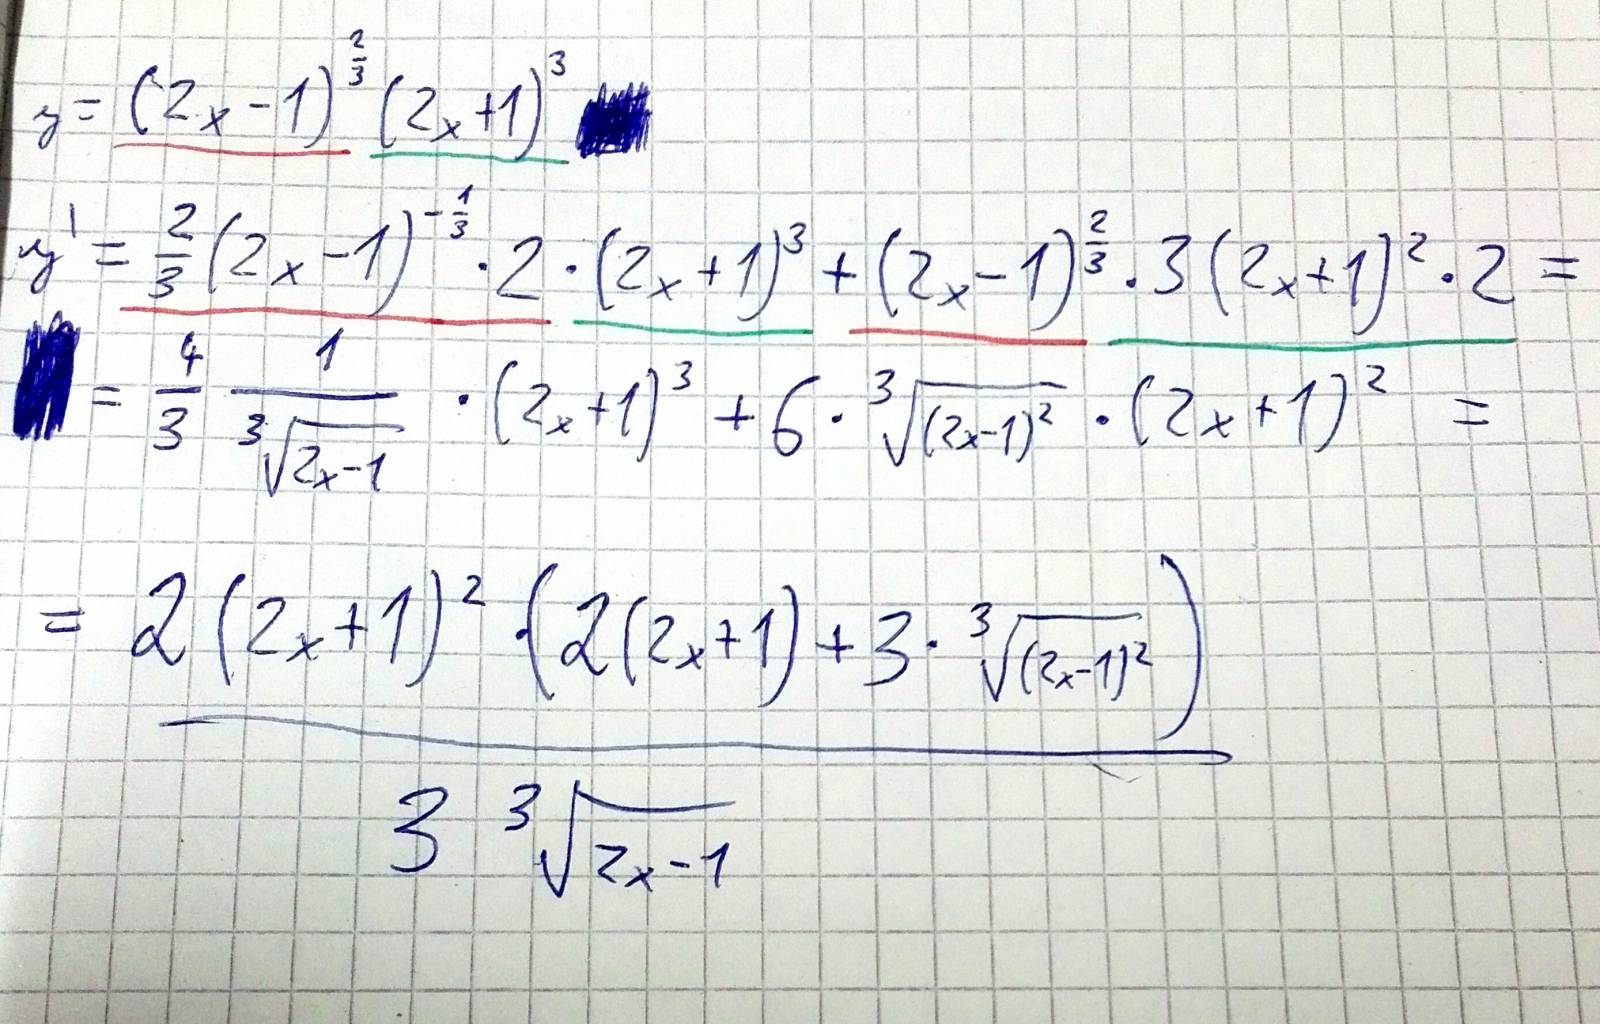 y = (2x-1)^{2/3} (2x+1)^3
y' = \frac{2}{3} (2x-1)^{-\frac{1}{3}} · 2 · (2x+1)^3 + (2x-1)^{\frac{2}{3}} · 3 (2x+1)^2 · 2 =
= \frac{4}{3} \frac{1}{\sqrt[3]{2x-1}} · (2x+1)^3 + 6 · \sqrt[3]{(2x-1)^2} · (2x+1)^2 =
= \frac{2(2x+1)^2 · (2(2x+1) + 3 · \sqrt[3]{(2x-1)^2})}{3 \sqrt[3]{2x-1}}